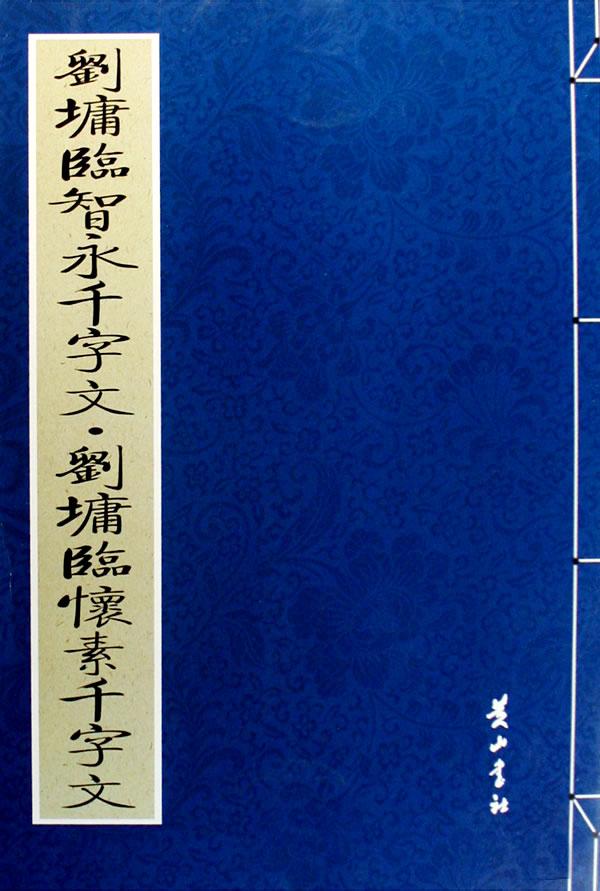 劉墉臨智永千字文·劉墉臨懷素千字文
黄山书社